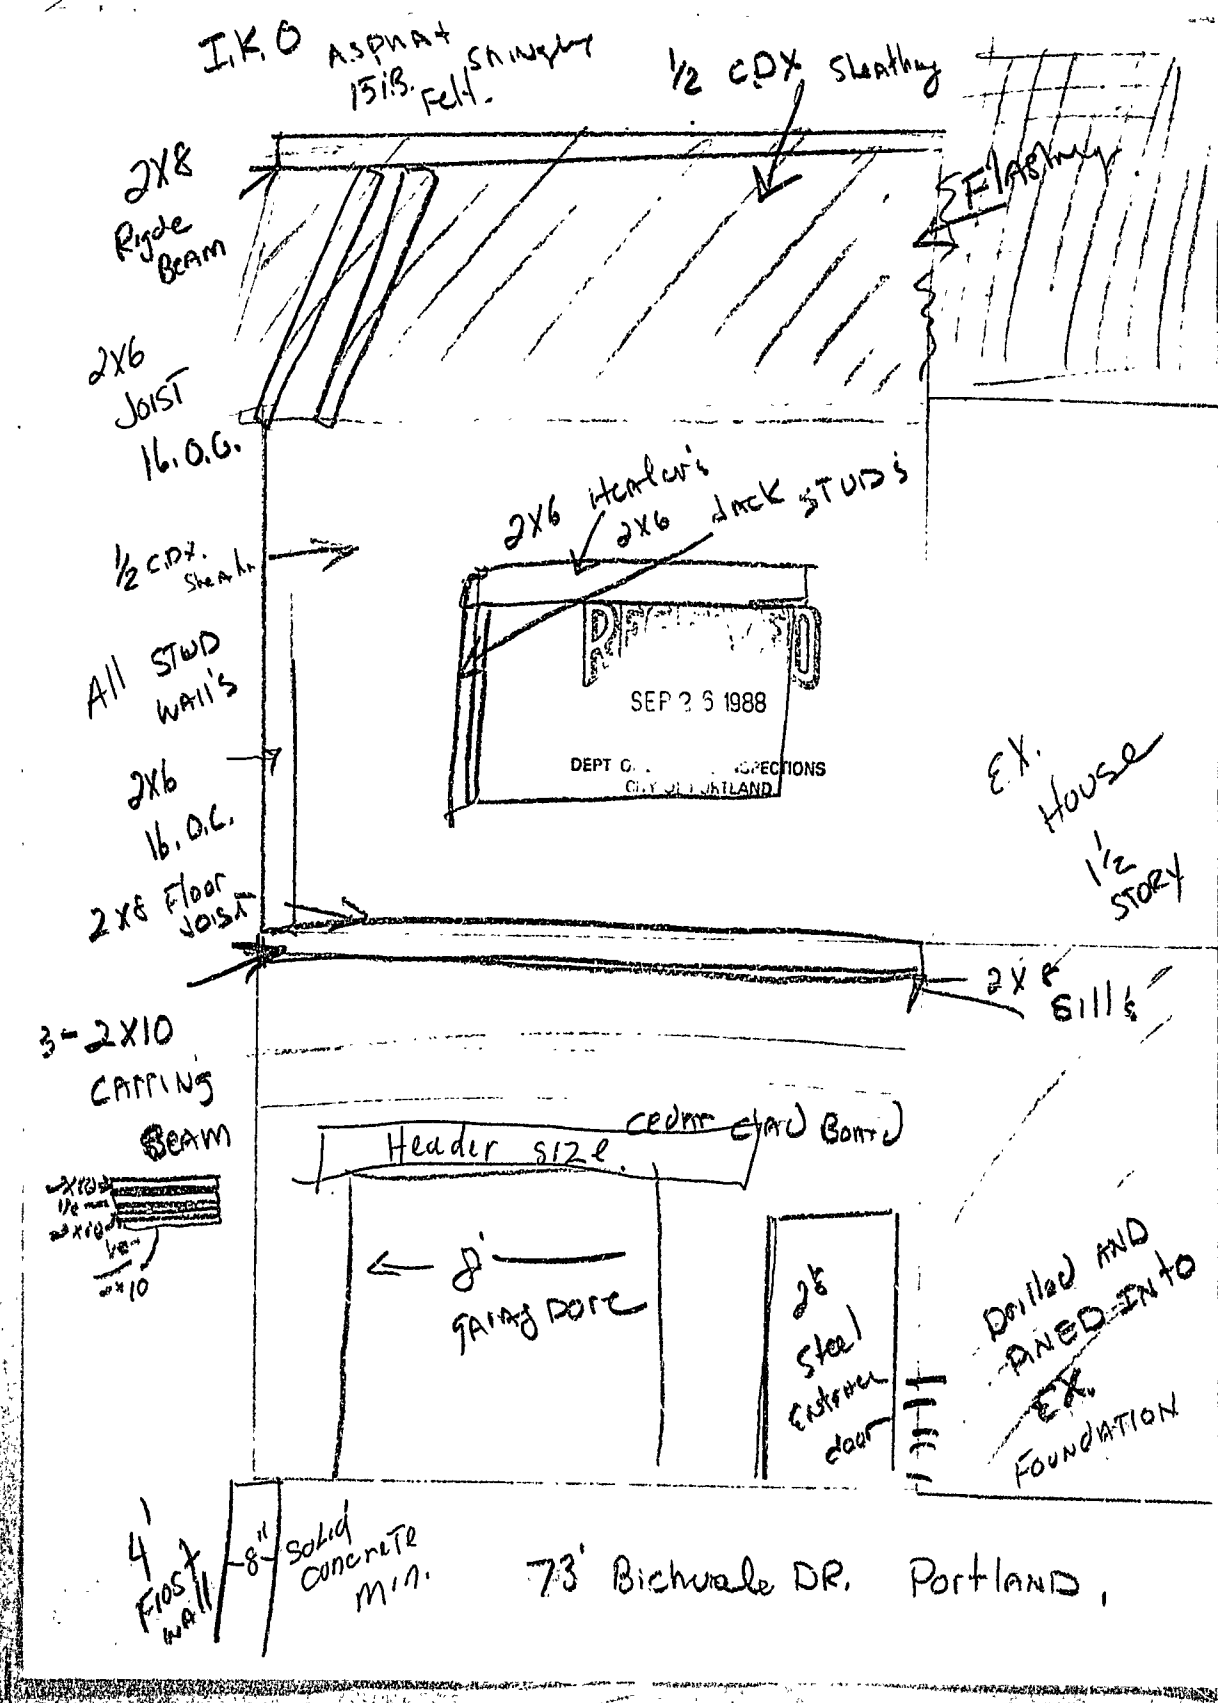 I.K.O Asphat Shingles
15lB. Felt.
1/2 C.DX Sheathing
2X8
Rigde
BEAM
Flashing
2X6
JOIST
16.O.C.
2X6 Header's
2X6 JACK STUD's
1/2 C.DX.
All STUD
WAll's
2X6
16.O.C.
SEP 26 1988
DEPT O SPECTIONS
CITY OF PORTLAND
EX.
House
1 1/2
STORY
2X8 Floor
JOIST
2X8
Sill's
3-2X10
CArrING
BEAM
2X10
CedAr ClAp BoArd
Header size.
8'
garag Dore
28
Steel
Entrance
door
Drilled AND
PINED INto
EX.
FOUNDATION
4'
Frost
WAll
8"
Solid
CONCRETE
MIN.
73' Bichvale DR. PortlAND,